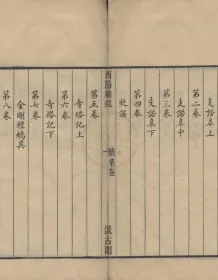 支諾皋上
第二卷
支諾皋中
第三卷
支諾皋下
第四卷
貶誤
酉陽雜俎
續集卷
一
汲古閣
第五卷
寺塔記上
第六卷
寺塔記下
第七卷
金剛經鳩異
第八卷